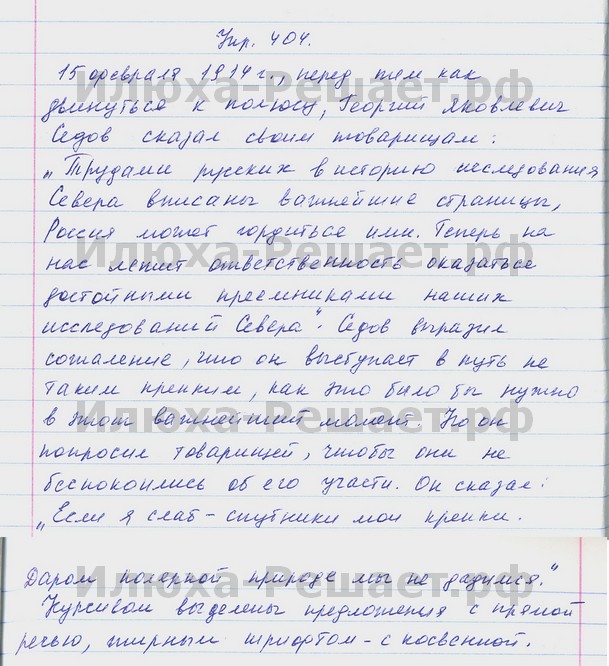 Упр. 404.
15 февраля 1914 г., перед тем как
двинуться к полюсу, Георгий Яковлевич
Седов сказал своим товарищам:
„Трудами русских в историю исследования
Севера вписаны важнейшие страницы,
Россия может гордиться ими. Теперь на
нас лежит ответственность оказаться
достойными преемниками наших
исследований Севера“. Седов выразил
сожаление, что он выступает в путь не
таким крепким, как это было бы нужно
в этот важнейший момент. Но он
попросил товарищей, чтобы они не
беспокоились об его участи. Он сказал:
„Если я слаб – спутники мои крепки.
Даром полярной природе мы не дадимся.“
Курсивом выделены предложения с прямой
речью, жирным шрифтом – с косвенной.
Илюха-Решает.рф
Илюха-Решает.рф
Илюха-Решает.рф
Илюха-Решает.рф